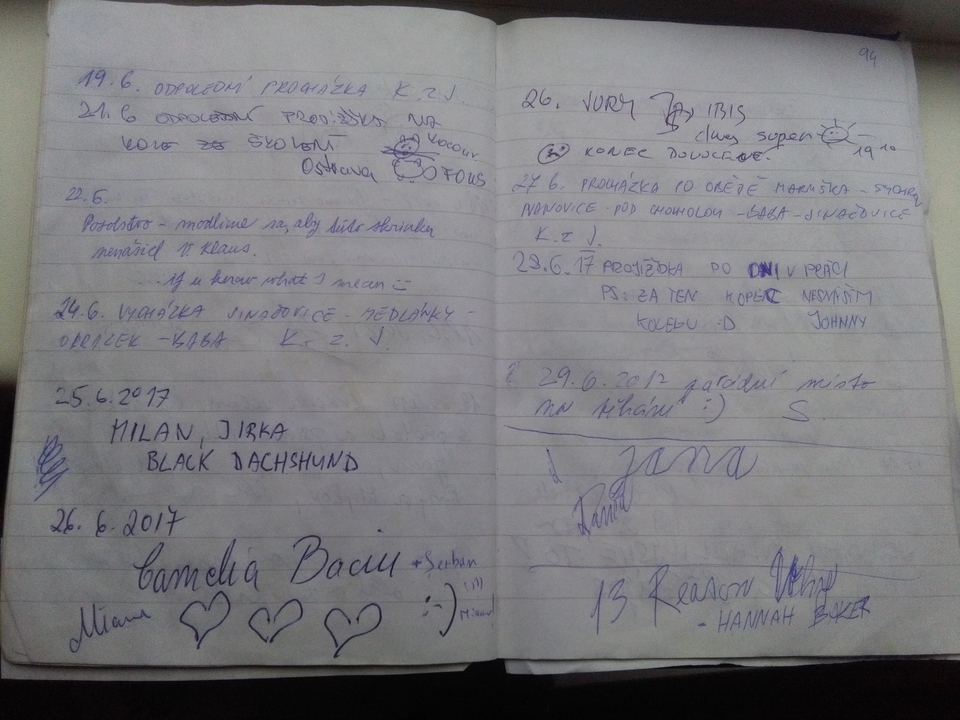 19.6. ODPOLEDNÍ PROCHÁZKA K. z J.
21.6 ODPOLEDNÍ PROJÍŽĎKA NA
KOLE ŠKOLENÍ KOCOUR
Ostrava FOUS
22.6.
modlíme sa, aby túto skrinku
nenašiel V. Klaus.
...if u know what I mean
24.6. VYCHÁZKA JINAČOVICE - MEDLÁNKY -
- BABA K. z. J.
25.6.2017
MILAN, JIRKA
BLACK DACHSHUND
26.6.2017
Camelia Baciu + Serban
Miam :-)
94
26. JURY IBIS
dnes super 19:10
KONEC DOVOLENÉ.
27.6. PROCHÁZKA PO OBĚDĚ
IVANOVICE - POD CHOCHOLOU - BABA - JINAČOVICE
K. z J.
29.6.17 PROJÍŽĎKA PO DNI V PRÁCI
PS: ZA TEN KOPEC NESNÁŠÍM
KOLEGU :D JOHNNY
29.6.2017 parádní místo
na :) S.
Jana
13 Reason Why
- HANNAH BAKER